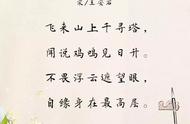 宋/王安石
飞来山上千寻塔，
闻说鸡鸣见日升。
不畏浮云遮望眼，
自缘身在最高层。